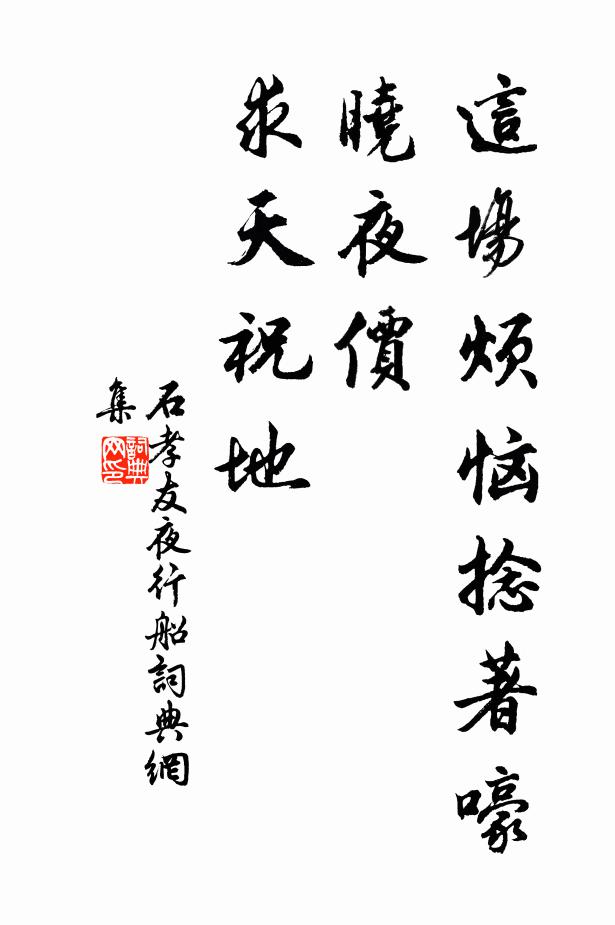 這場煩恼捻著嚎
曉夜價
求天祝地
石孝友夜行船詞典網
集
詞典網印